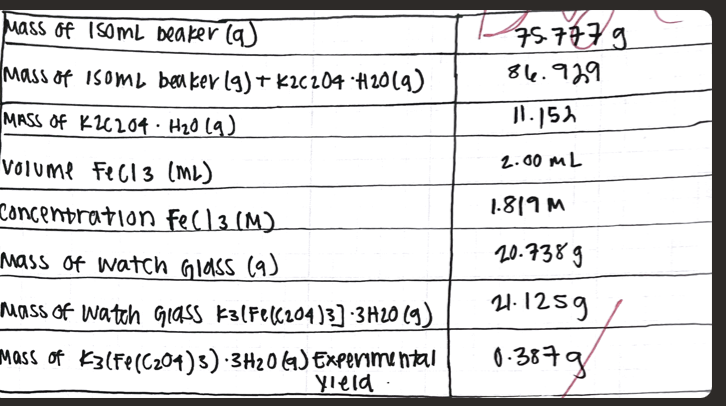 Mass of 150mL beaker (g) 75.777 g
Mass of 150mL beaker (g) + K2C2O4 · H2O (g) 86.929
MASS OF K2C2O4 · H2O (g) 11.152
Volume FeCl3 (mL) 2.00 mL
Concentration FeCl3 (M) 1.819 M
Mass of Watch Glass (g) 20.738 g
Mass of Watch Glass K3[Fe(C2O4)3] · 3H2O (g) 21.125 g
Mass of K3(Fe(C2O4)3) · 3H2O (g) Experimental 0.387 g
Yield